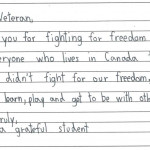 Veteran,
you for fighting for freedom
everyone who lives in Canada
didn't fight for our freedom,
learn, play and get to be with oth
ruly,
a grateful student